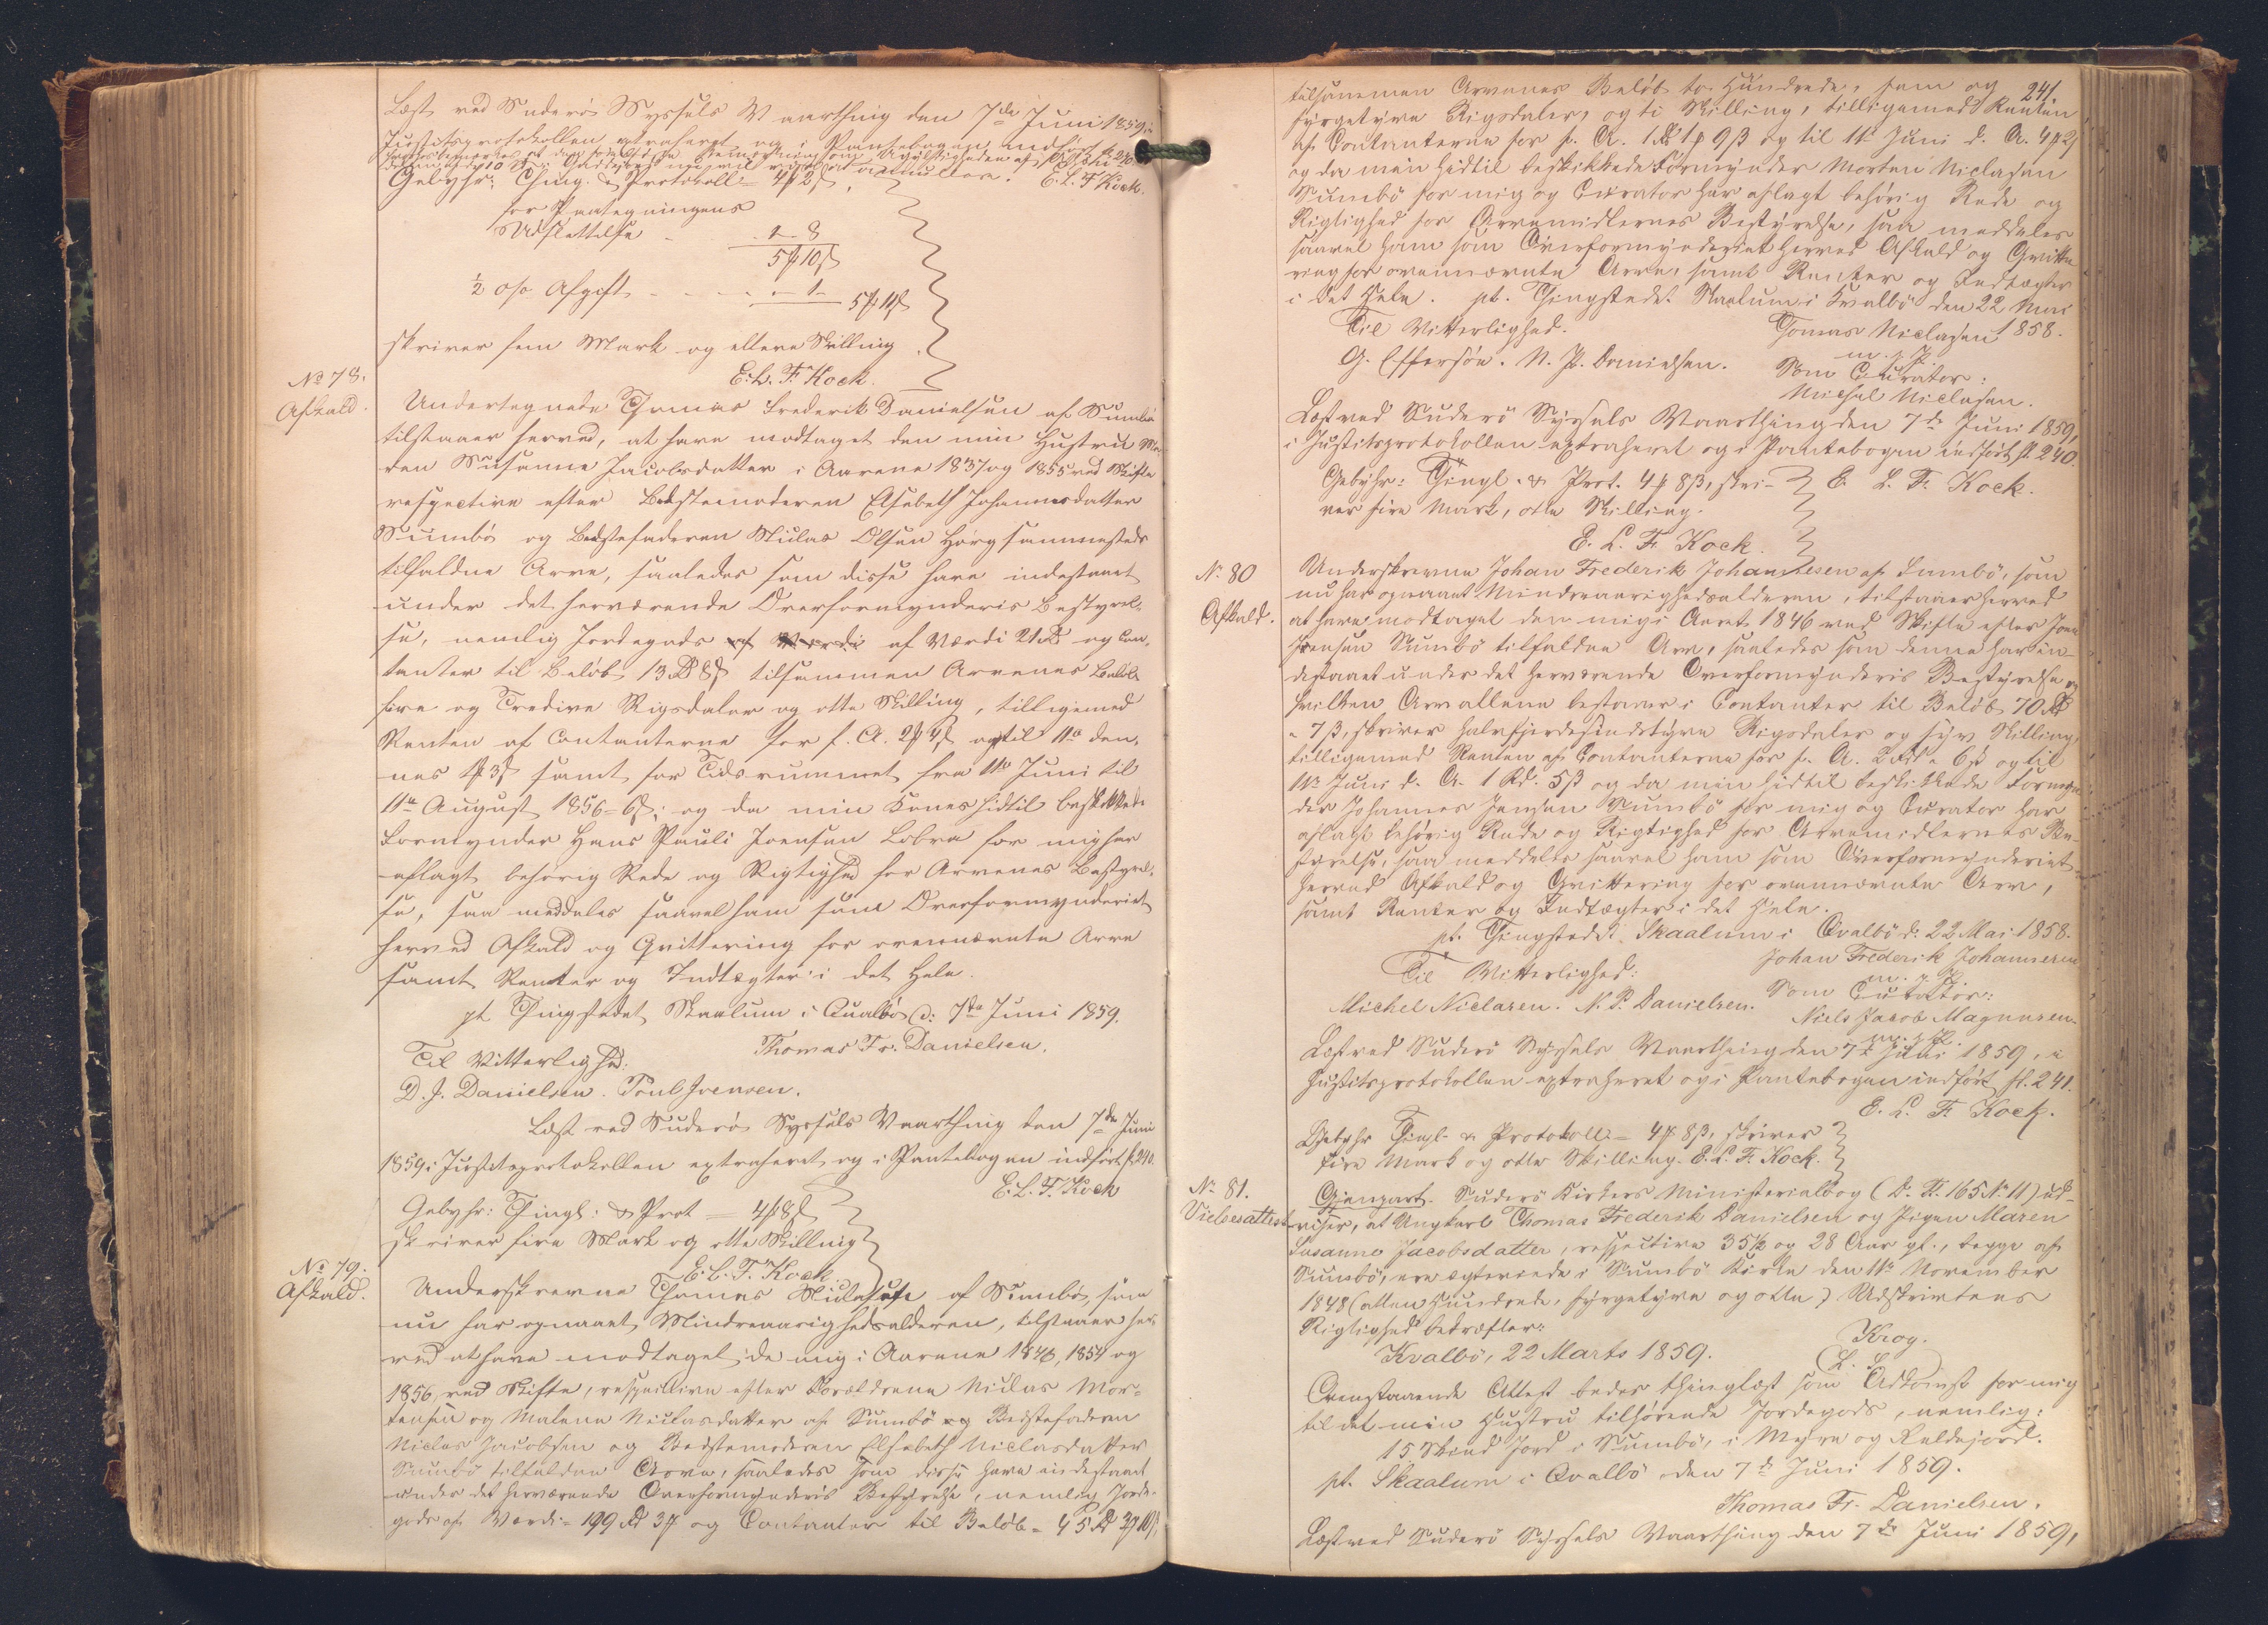 Læst ved Suderö Syssels Vaarthing den 7de Juni 1859, i
Justitsprotokollen extraheret og i Pantebogen indført fol. 240
Gebyhr: Thing. & Protokoll = 4 # 2 ß. E. L. F. Kock.
for Paategningens
Udslettelse - 1 - 8
5 # 10 ß
½ o/o Afgift - - - - 1 -
5 # 11 ß
skriver fem Mark og elleve Skilling
E. L. F. Kock.
No 78.
Afkald.
Undertegnede Thomas Frederik Danielsen af Sumbö
tilstaaer herved, at have modtaget den min Hustru Ma-
ren Susanne Jacobsdatter i Aarene 1837 og 1855 ved Skifte
respective efter Bedstemoderen Elsebeth Johannesdatter
Sumbö og Bedstefaderen Niclas Olsen Hørg sammesteds
tilfaldne Arve, saaledes som disse have indestaaet
under det herværende Overformynderis Bestyrel-
se, nemlig Jordegods af Værdi af Værdi 21 Rd og Con-
tanter til Beløb 13 Rd 8 ß tilsammen Arvenes Beløb
fire og Tredive Rigsdaler og otte Skilling, tilligemed
Renten af Contanterne for f. A. 2 # 4 ß og til 11te den-
nes 1 # 3 ß samt for Tidsrummet fra 11te Juni til
11te August 1856 = 6 ß; og da min Kones hidtil beskikkede
Formynder Hans Pauli Joensen Lobra for mig har
aflagt behørig Rede og Rigtighed for Arvenes Bestyrel-
se, saa meddeles saavel ham som Overformynderiet
herved Afkald og Qvittering for ovennævnte Arve
samt Renter og Indtægter i det Hele.
pt Thingstedet Skaalum i Qualbö d: 7de Juni 1859.
Thomas Fr. Danielsen.
Til Vitterlighed:
D. J. Danielsen. Poul Joensen.
Læst ved Suderö Syssels Vaarthing den 7de Juni
1859 i Justitsprotokollen extraheret og i Pantebogen indført f. 240.
E. L. F. Kock
Gebyhr: Thingl: & Prot = 4 # 8 ß
skriver fire Mark og otte Skilling
E. L. F. Kock.
No 79.
Afkald.
Underskrevne Thomas Niclasen af Sumbö, som
nu har opnaaet Mindreaarighedsalderen, tilstaaer her-
ved at have modtaget de mig i Aarene 1846, 1854 og
1856 ved Skifte, respective efter Forældrene Niclas Mor-
tensen og Malene Niclasdatter af Sumbö og Bedstefaderen
Niclas Jacobsen og Bedstemoderen Elsebeth Niclasdatter
Sumbö tilfaldne Arve, saaledes som disse have indestaaet
under det herværende Overformynderis Bestyrelse, nemlig Jorde-
gods af Værdi = 199 Rd 3 # og Contanter til Beløb = 45 Rd 3 # 10 ß,
241
tilsammen Arvenes Beløb to Hundrede, fem og
fyrgetyve Rigsdaler, og ti Skilling, tilligemed Renten
af Contanterne for f. A. 1 Rd 1 # 9 ß og til 11te Juni d. A. 4 # 2 ß
og da min hidtil beskikkede Formynder Morten Niclasen
Sumbö for mig og Curator har aflagt behørig Rede og
Rigtighed for Arvemidlernes Bestyrelse, saa meddeles
saavel ham som Overformynderiet herved Afkald og Qvitte-
ring for ovennævnte Arve, samt Renter og Indtægter
i det Hele. pt. Thingstedet Skaalum i Kvalbö den 22 Mai
1858.
Til Vitterlighed. Tomas Niclasen
m. f. P.
G. Effersöe. N. P. Danielsen. Som Curator:
Michel Niclasen.
Læst ved Suderö Syssels Vaarthing den 7de Juni 1859,
i Justitsprotokollen extraheret og i Pantebogen indført f. 240.
Gebyhr: Thingl. & Prot. 4 # 8 ß, skri- E. L. F. Kock.
ver fire Mark, otte Skilling.
E. L. F. Kock.
No 80
Afkald.
Underskrevne Johan Frederik Johannesen af Sumbö, som
nu har opnaaet Mindreaarighedsalderen, tilstaaer herved
at have modtaget den mig i Aaret 1846 ved Skifte efter Joen
Joensen Sumbö tilfaldne Arv, saaledes som denne har in-
destaaet under det herværende Overformynderis Bestyrelse og
hvilken Arv allene bestaaer i Contanter til Beløb 70 Rd
" 7 ß, skriver halvfjerdesindstyve Rigsdaler og syv Skilling,
tilligemed Renten af Contanterne for f. A. 2 Rd " 6 ß og til
11te Juni d. A. 1 Rd. 5 ß og da min hidtil beskikkede Formyn-
der Johannes Jensen Sumbö for mig og Curator har
aflagt behørig Rede og Rigtighed for Arvemidlernes Be-
styrelse, saa meddeles saavel ham som Overformynderiet
herved Afkald og Qvittering for ovennævnte Arv,
samt Renter og Indtægter i det Hele.
pt. Thingstedet Skaalum i Qvalbö d: 22 Mai 1858.
Johan Frederik Johannesen
Til Vitterlighed: m. f. P.
Michel Niclasen. N. P. Danielsen. Som Curator:
Niels Jacob Magnusen.
m. f. P.
Læst ved Suderö Syssels Vaarthing den 7de Juni 1859, i
Justitsprotokollen extraheret og i Pantebogen indført fl. 241.
E. L. F. Kock.
Gebyhr Thingl- & Protokoll = 4 # 8 ß, skriver
fire Mark og otte Skilling. E. L. F. Kock.
No 81.
Vielsesattest
Gjenpart. Suderö Kirkers Ministerialbog (L. A. 165 No 11) ud-
viser, at Ungkarl Thomas Frederik Danielsen og Pigen Maren
Susanne Jacobsdatter, respective 35½ og 28 Aar gl., begge af
Sumbö, ere ægteviede i Sumbö Kirke den 11te November
1848 (atten Hundrede, fyrgetyve og otte) Udskriftens
Rigtighed bekræfter:
Kvalbö, 22 Marts 1859. Krog.
L. S.
Ovenstaaende Attest bedes thinglæst som Adkomst for mig
til det min Hustru tilhørende Jordegods, nemlig:
15 Skind Jord i Sumbö, i Myre og Reldejord.
pt. Skaalum i Qvalbö den 7de Juni 1859.
Thomas Fr. Danielsen.
Læst ved Suderö Syssels Vaarthing den 7de Juni 1859,